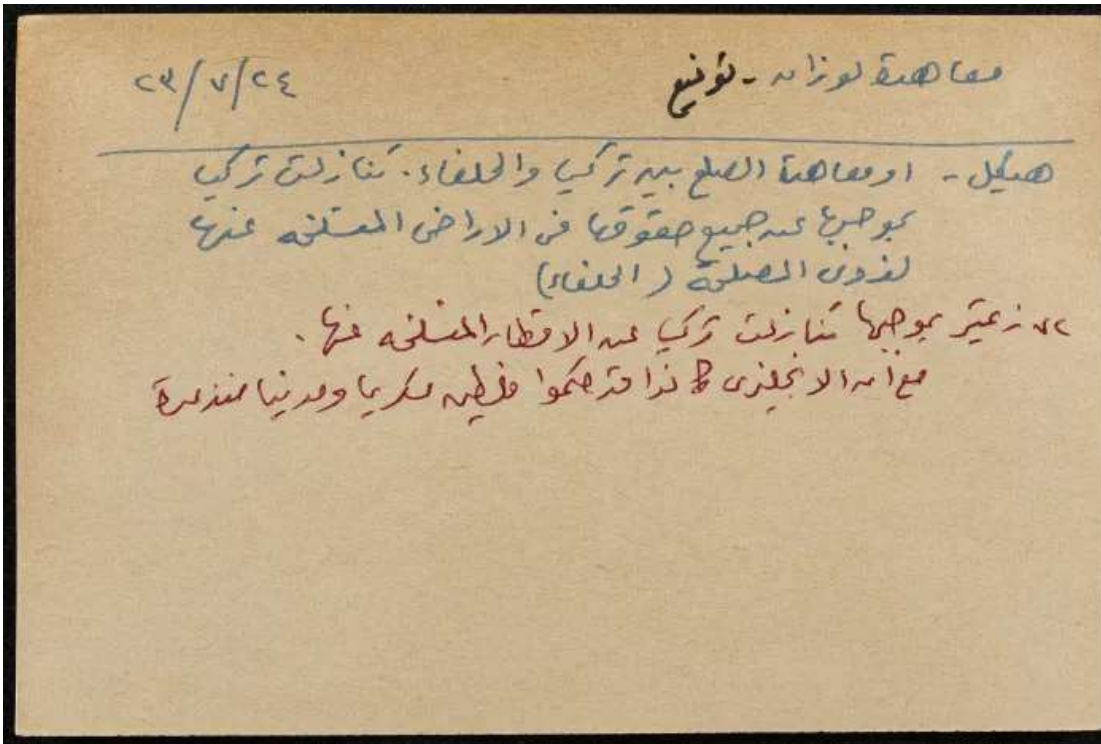 معاهدة لوزان - توقيع ٢٣/٧/٢٤
هيكل - او معاهدة الصلح بين تركيا والحلفاء. تنازلت تركيا
بموجبها عن جميع حقوقها في الاراضي المنسلخه عنها
لذوى المصلحة (الحلفاء)
٧٢ زعيتر بموجبها تنازلت تركيا عن الاقطار المنسلخه عنها.
مع ان الانجليزى كانوا قد حكموا فلسطين عسكريا ومدنيا منذ مدة